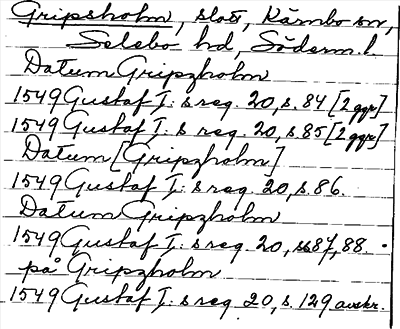 Gripsholm, slott, Kärnbo sn,
Selebo hd, Söderm. l.
Datum Gripzholm
1549 Gustaf I: s reg. 20, s. 84 [2 ggr]
1549 Gustaf I: s reg. 20, s. 85 [2 ggr]
Datum [Gripzholm]
1549 Gustaf I: s reg. 20, s. 86.
Datum Gripzholm
1549 Gustaf I: s reg. 20, ss 87, 88.
på Gripzholm
1549 Gustaf I: s reg. 20, s. 129 avskr.